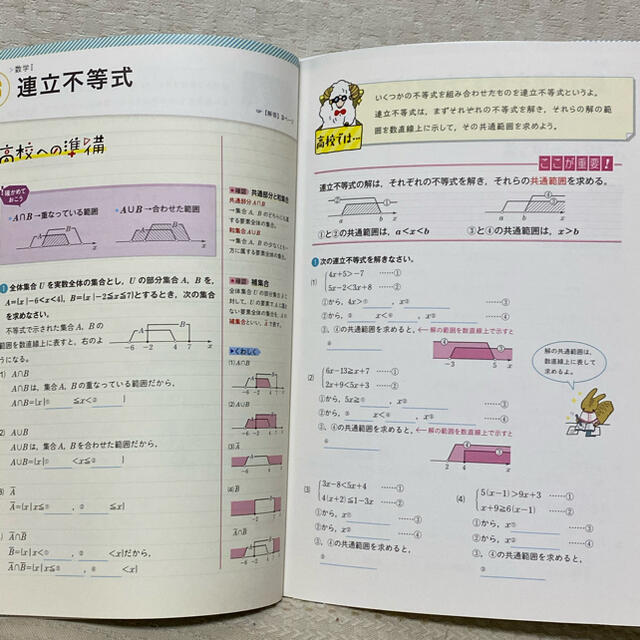 数学Ⅰ
連立不等式
【解答】
高校への準備
確かめておこう
A∩B→重なっている範囲
A∪B→合わせた範囲
1 全体集合Uを実数全体の集合とし，Uの部分集合A，Bを，
A={x|-6<x<4}，B={x|-2≦x≦7}とするとき，次の集合
を求めなさい。
不等式で示された集合A，Bの
範囲を数直線上に表すと，右のよ
うになる。
A B
-6 -2 4 7 x
1) A∩B
A∩Bは，集合A，Bの重なっている範囲だから，
A∩B={x|① ≦x<② }
2) A∪B
A∪Bは，集合A，Bを合わせた範囲だから，
A∪B={x|① <x≦② }
3) A
A={x|x≦① ，② ≦x}
B={x|x<① ，② <x}だから，
A∩B={x|x≦③ ，④ <x}
確認 共通部分と和集合
共通部分A∩B
→集合A，Bのどちらにも属
する要素全体の集合。
和集合A∪B
→集合A，Bの少なくとも一
方に属する要素全体の集合。
確認 補集合
くわしく
(1)A∩B
(2)A∪B
(3)A
(4)B
A∩B
高校では…
いくつかの不等式を組み合わせたものを連立不等式というよ。
連立不等式は，まずそれぞれの不等式を解き，それらの解の範
囲を数直線上に示して，その共通範囲を求めよう。
ここが重要！
連立不等式の解は，それぞれの不等式を解き，それらの共通範囲を求める。
② ① a b x
③ ④ a b x
①と②の共通範囲は，a<x<b ③と④の共通範囲は，x>b
1 次の連立不等式を解きなさい。
(1) 4x+5>-7 ……①
5x-2<3x+8 ……②
①から，4x>① ，x② ……③
②から，③ x<④ ，x⑤ ……④
③，④の共通範囲を求めると，←解の範囲を数直線上で示すと
⑥
④ ③ -3 5 x
(2) 6x-13≧x+7 ……①
2x+9<5x+3 ……②
①から，5x≧① ，x② ……③
②から，③ x<④ ，x⑤ ……④
③，④の共通範囲を求めると，←解の範囲を数直線上で示すと
⑥
④ ③ 2 4 x
解の共通範囲は，
数直線上に表して
求めるよ。
(3) 3x-8<5x+4 ……①
4(x+2)≦1-3x ……②
①から，x① ……③
②から，x② ……④
③，④の共通範囲を求めると，
③
(4) 5(x-1)>9x+3 ……①
x+9≧6(x-1) ……②
①から，x① ……③
②から，x② ……④
③，④の共通範囲を求めると，
③